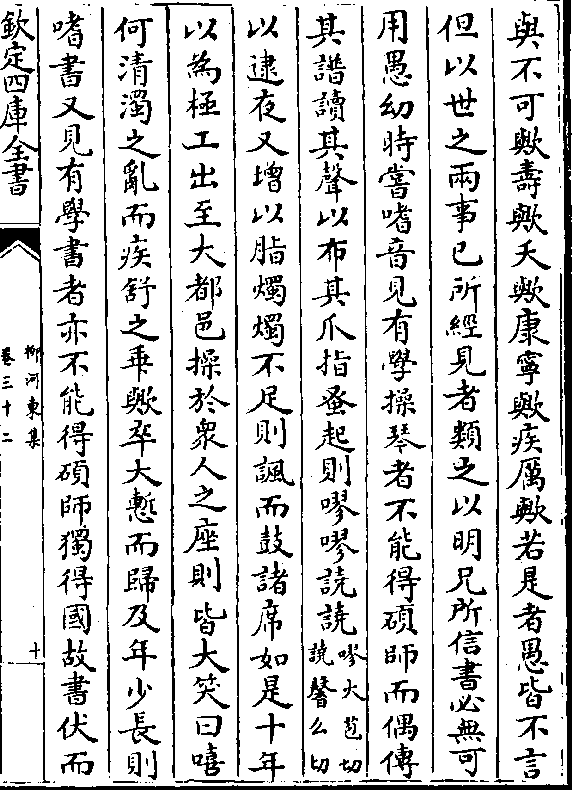 與不可歟壽歟夭歟康寧歟疾厲歟若是者愚皆不言
但以世之兩事已所經見者類之以明兄所信書必無可
用愚幼時嘗嗜音見有學操琴者不能得碩師而偶傳
其譜讀其聲以布其爪指蚤起則嘐嘐譊譊嘐火苞切譊馨么切
以逮夜又增以脂燭燭不足則諷而鼓諸席如是十年
以為極工出至大都邑操於衆人之座則皆大笑曰嘻
何清濁之亂而疾舒之乖歟卒大慙而歸及年少長則
嗜書又見有學書者亦不能得碩師獨得國故書伏而
欽定四庫全書
柳河東集
卷三十二
十